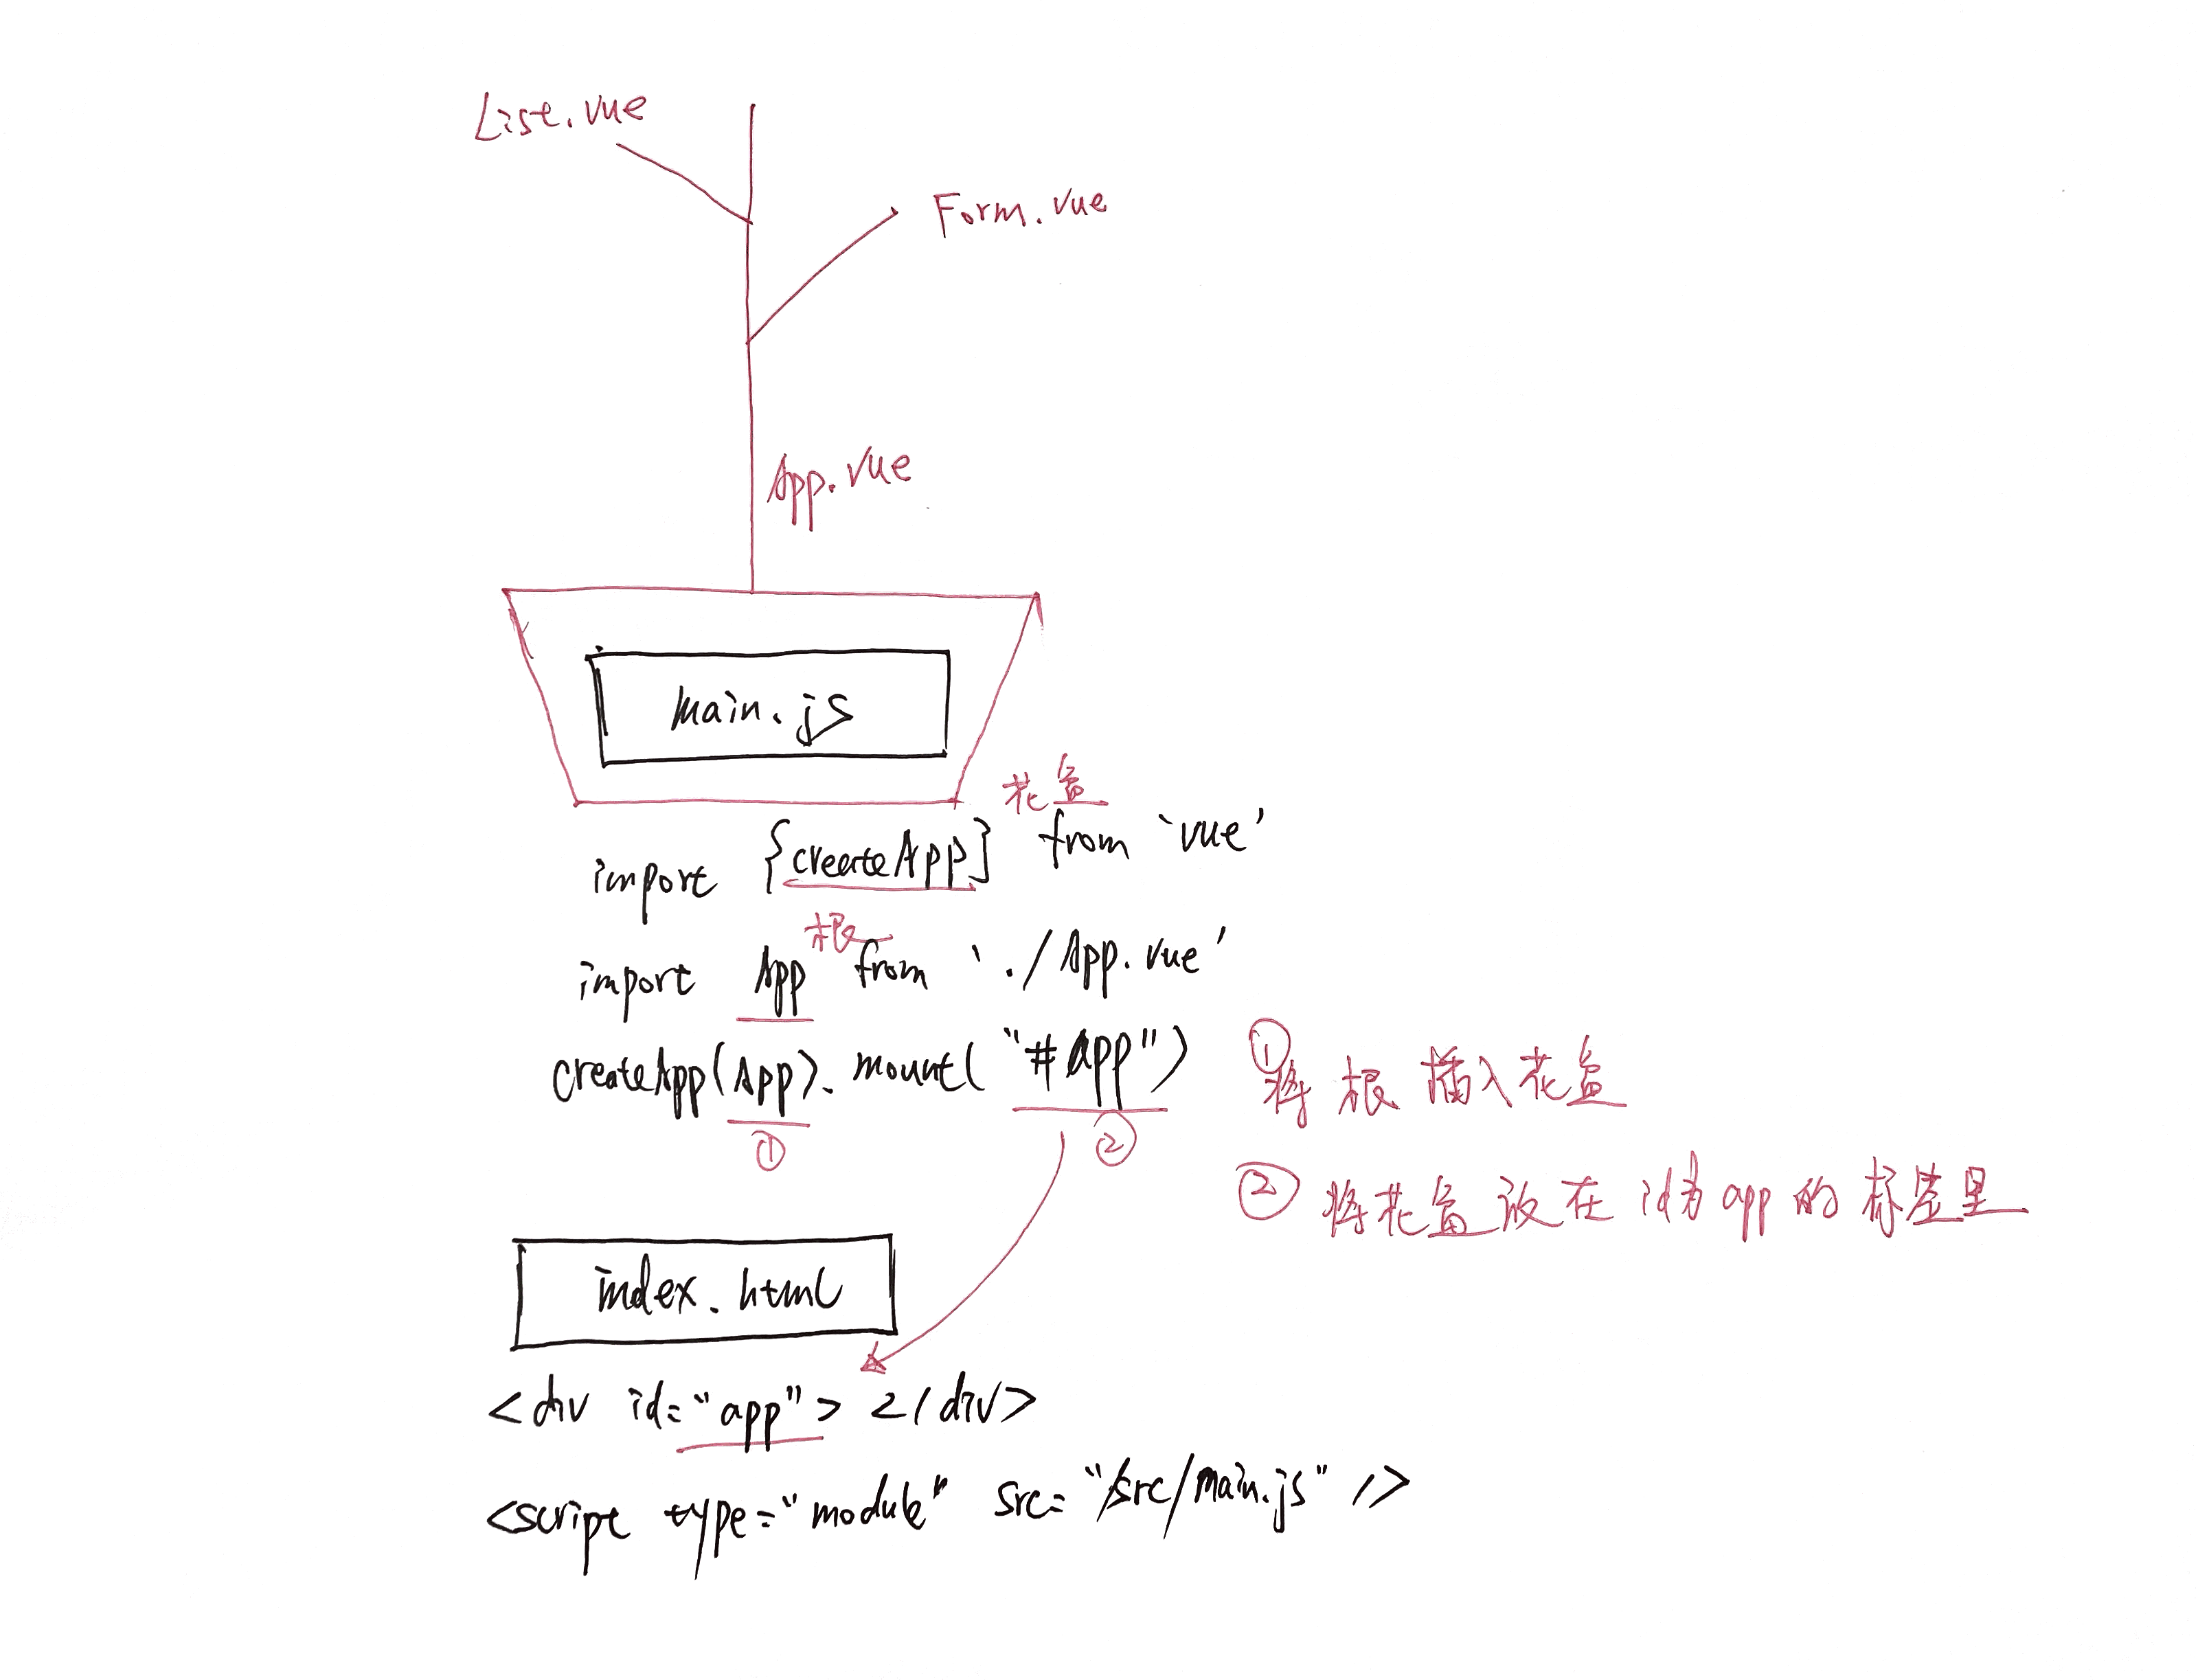 List.vue
Form.vue
App.vue
main.js
花盆
import {createApp} from `vue'
根
import App from './App.vue'
createApp(App).mount("#app")
① ②
① 将根插入花盆
② 将花盆放在id为app的标签里
index.html
<div id="app"> </div>
<script type="module" src="/src/main.js" />